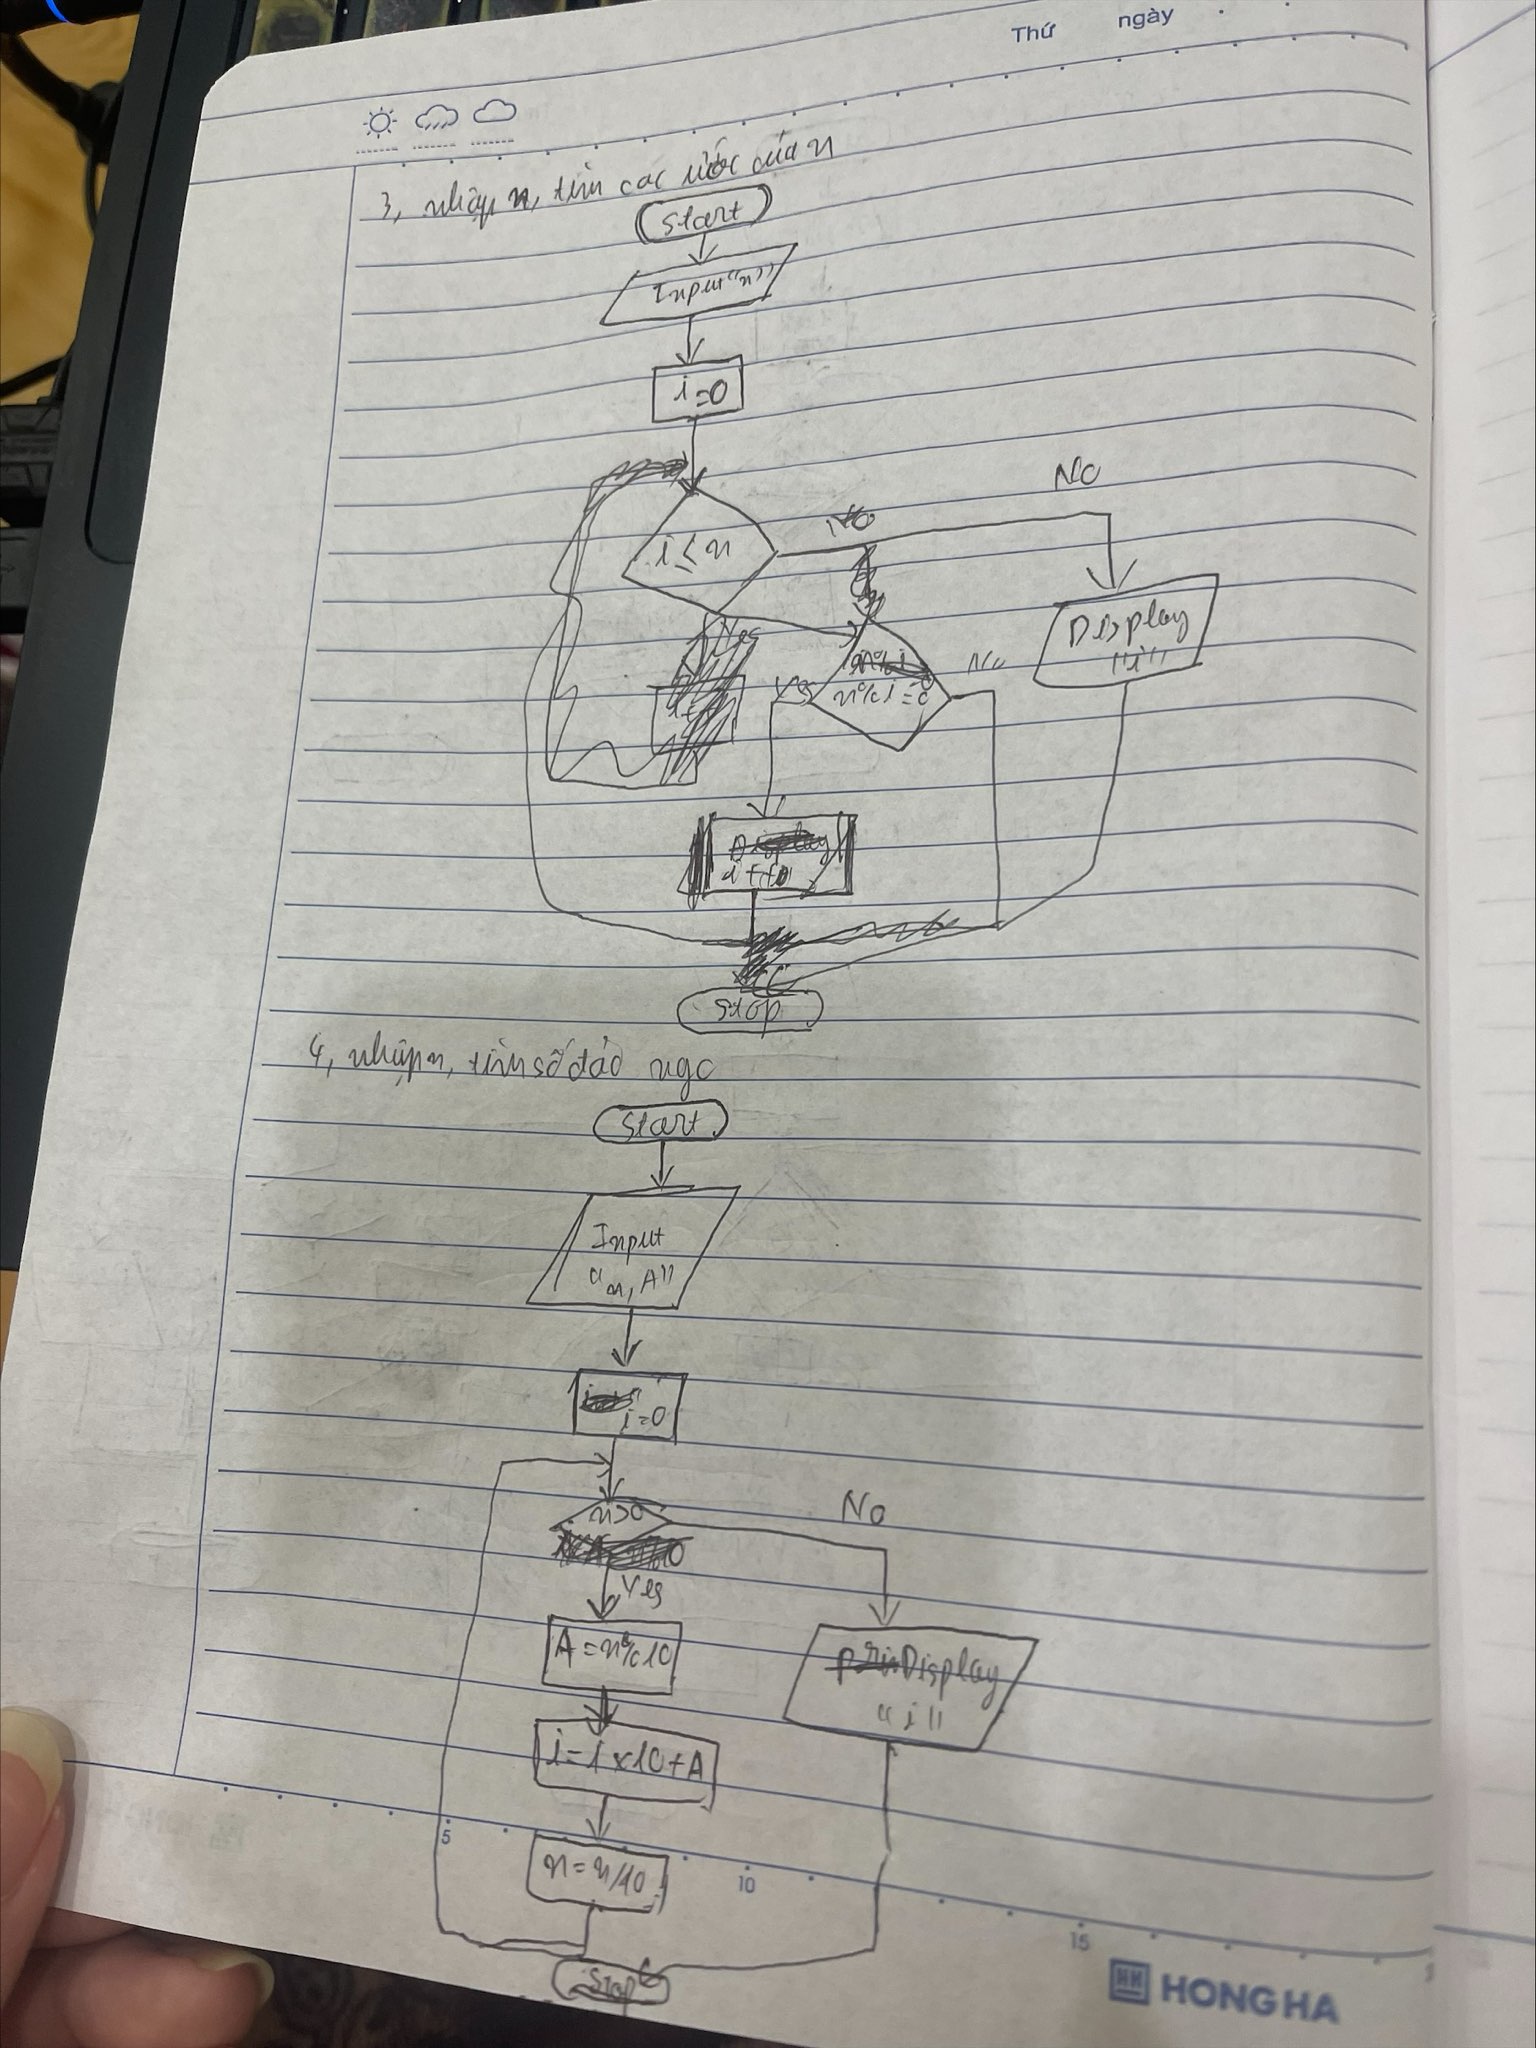 Thứ ngày
3, nhập n, tìm các ước của n
Start
Input "n"
i=0
No
i ≤ n
Display
"i"
Yes
No
n%i=0
Yes
stop
4, nhập n, tìm số đảo ngc
Start
Input
"n, A"
i=0
n>0
No
Yes
A=n%10
Display
"i"
i=i×10+A
n=n/10
Stop
5
10
15
HONG HA